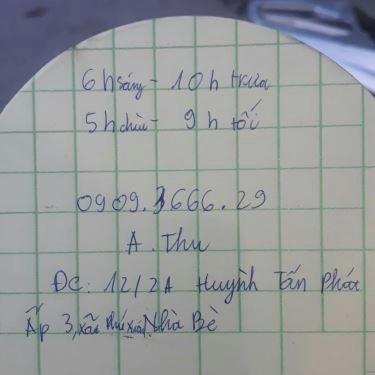 6h sáng - 10h trưa
5h chiều - 9h tối
0909.3666.29
A. Thu
ĐC: 12/2A Huỳnh Tấn Phát
Ấp 3, xã Phú Xuân, Nhà Bè